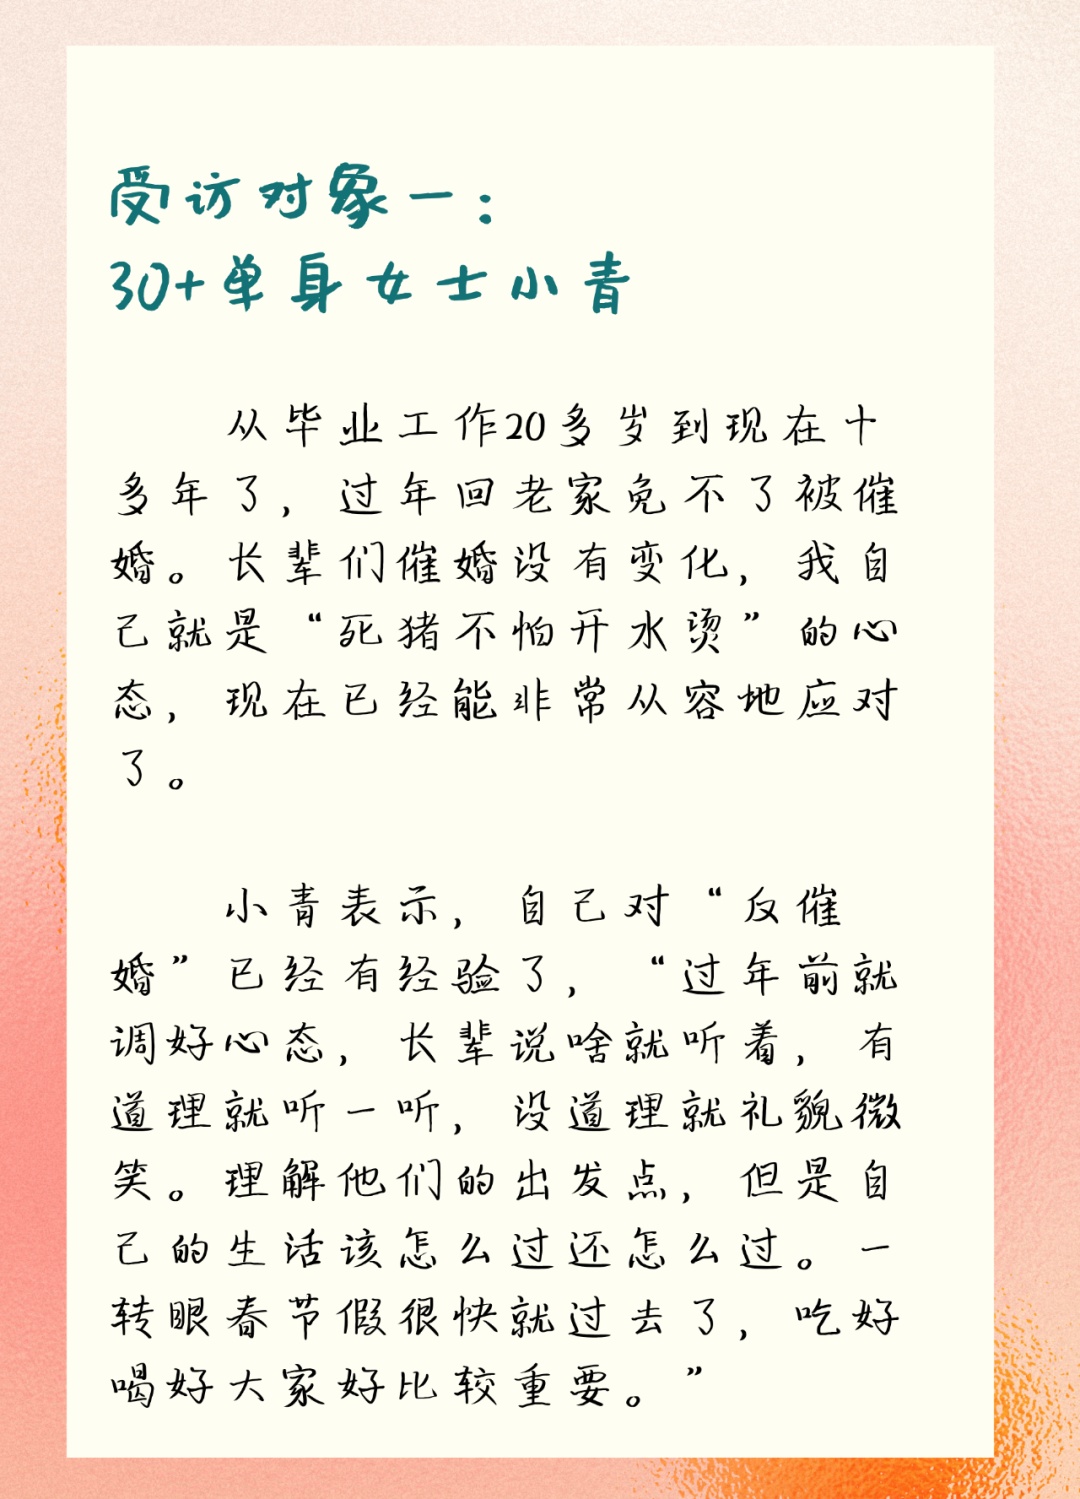 受访对象一：
30+单身女士小青
从毕业工作20多岁到现在十
多年了，过年回老家免不了被催
婚。长辈们催婚没有变化，我自
己就是“死猪不怕开水烫”的心
态，现在已经能非常从容地应对
了。
小青表示，自己对“反催
婚”已经有经验了，“过年前就
调好心态，长辈说啥就听着，有
道理就听一听，没道理就礼貌微
笑。理解他们的出发点，但是自
己的生活该怎么过还怎么过。一
转眼春节假很快就过去了，吃好
喝好大家好比较重要。”